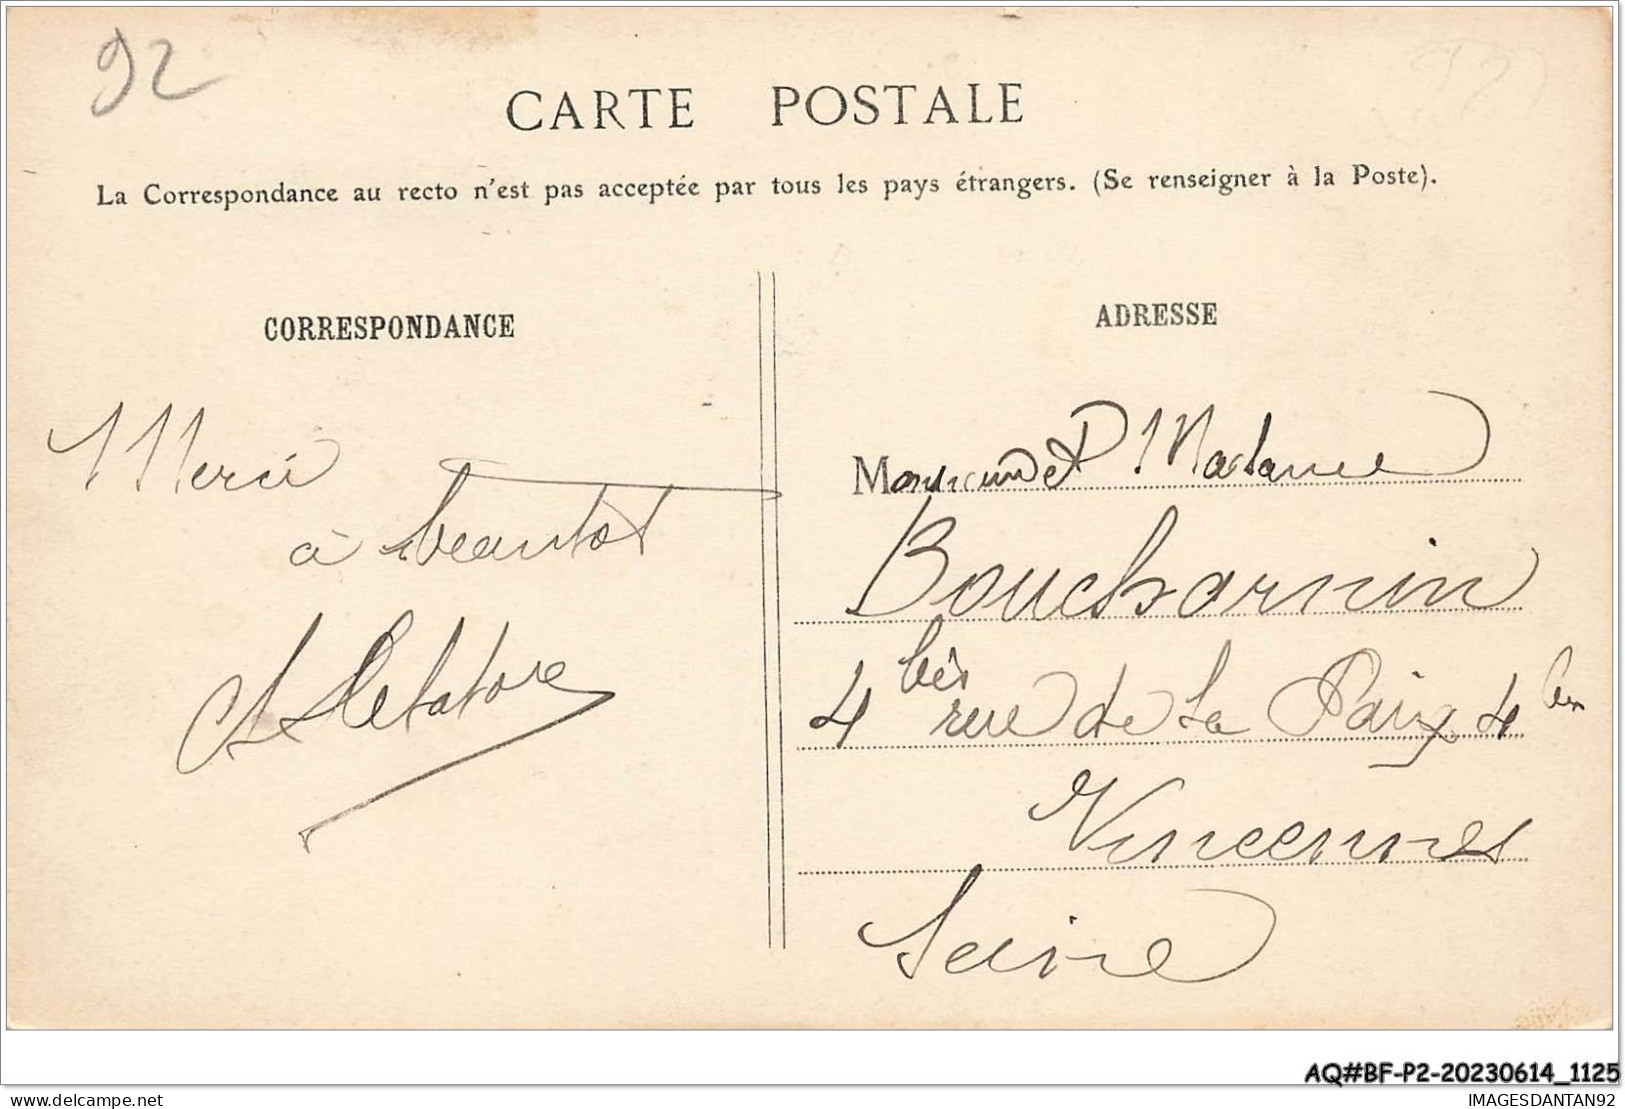 92
CARTE POSTALE
La Correspondance au recto n'est pas acceptée par tous les pays étrangers. (Se renseigner à la Poste).
CORRESPONDANCE
Merci
à beantot
ADRESSE
Monsieur et Madame
Boucharnin
4 bis rue de la Paix 4 bis
Vincennes
Seine
AQ#BF-P2-20230614_1125
delcampe.net
IMAGESDANTAN92